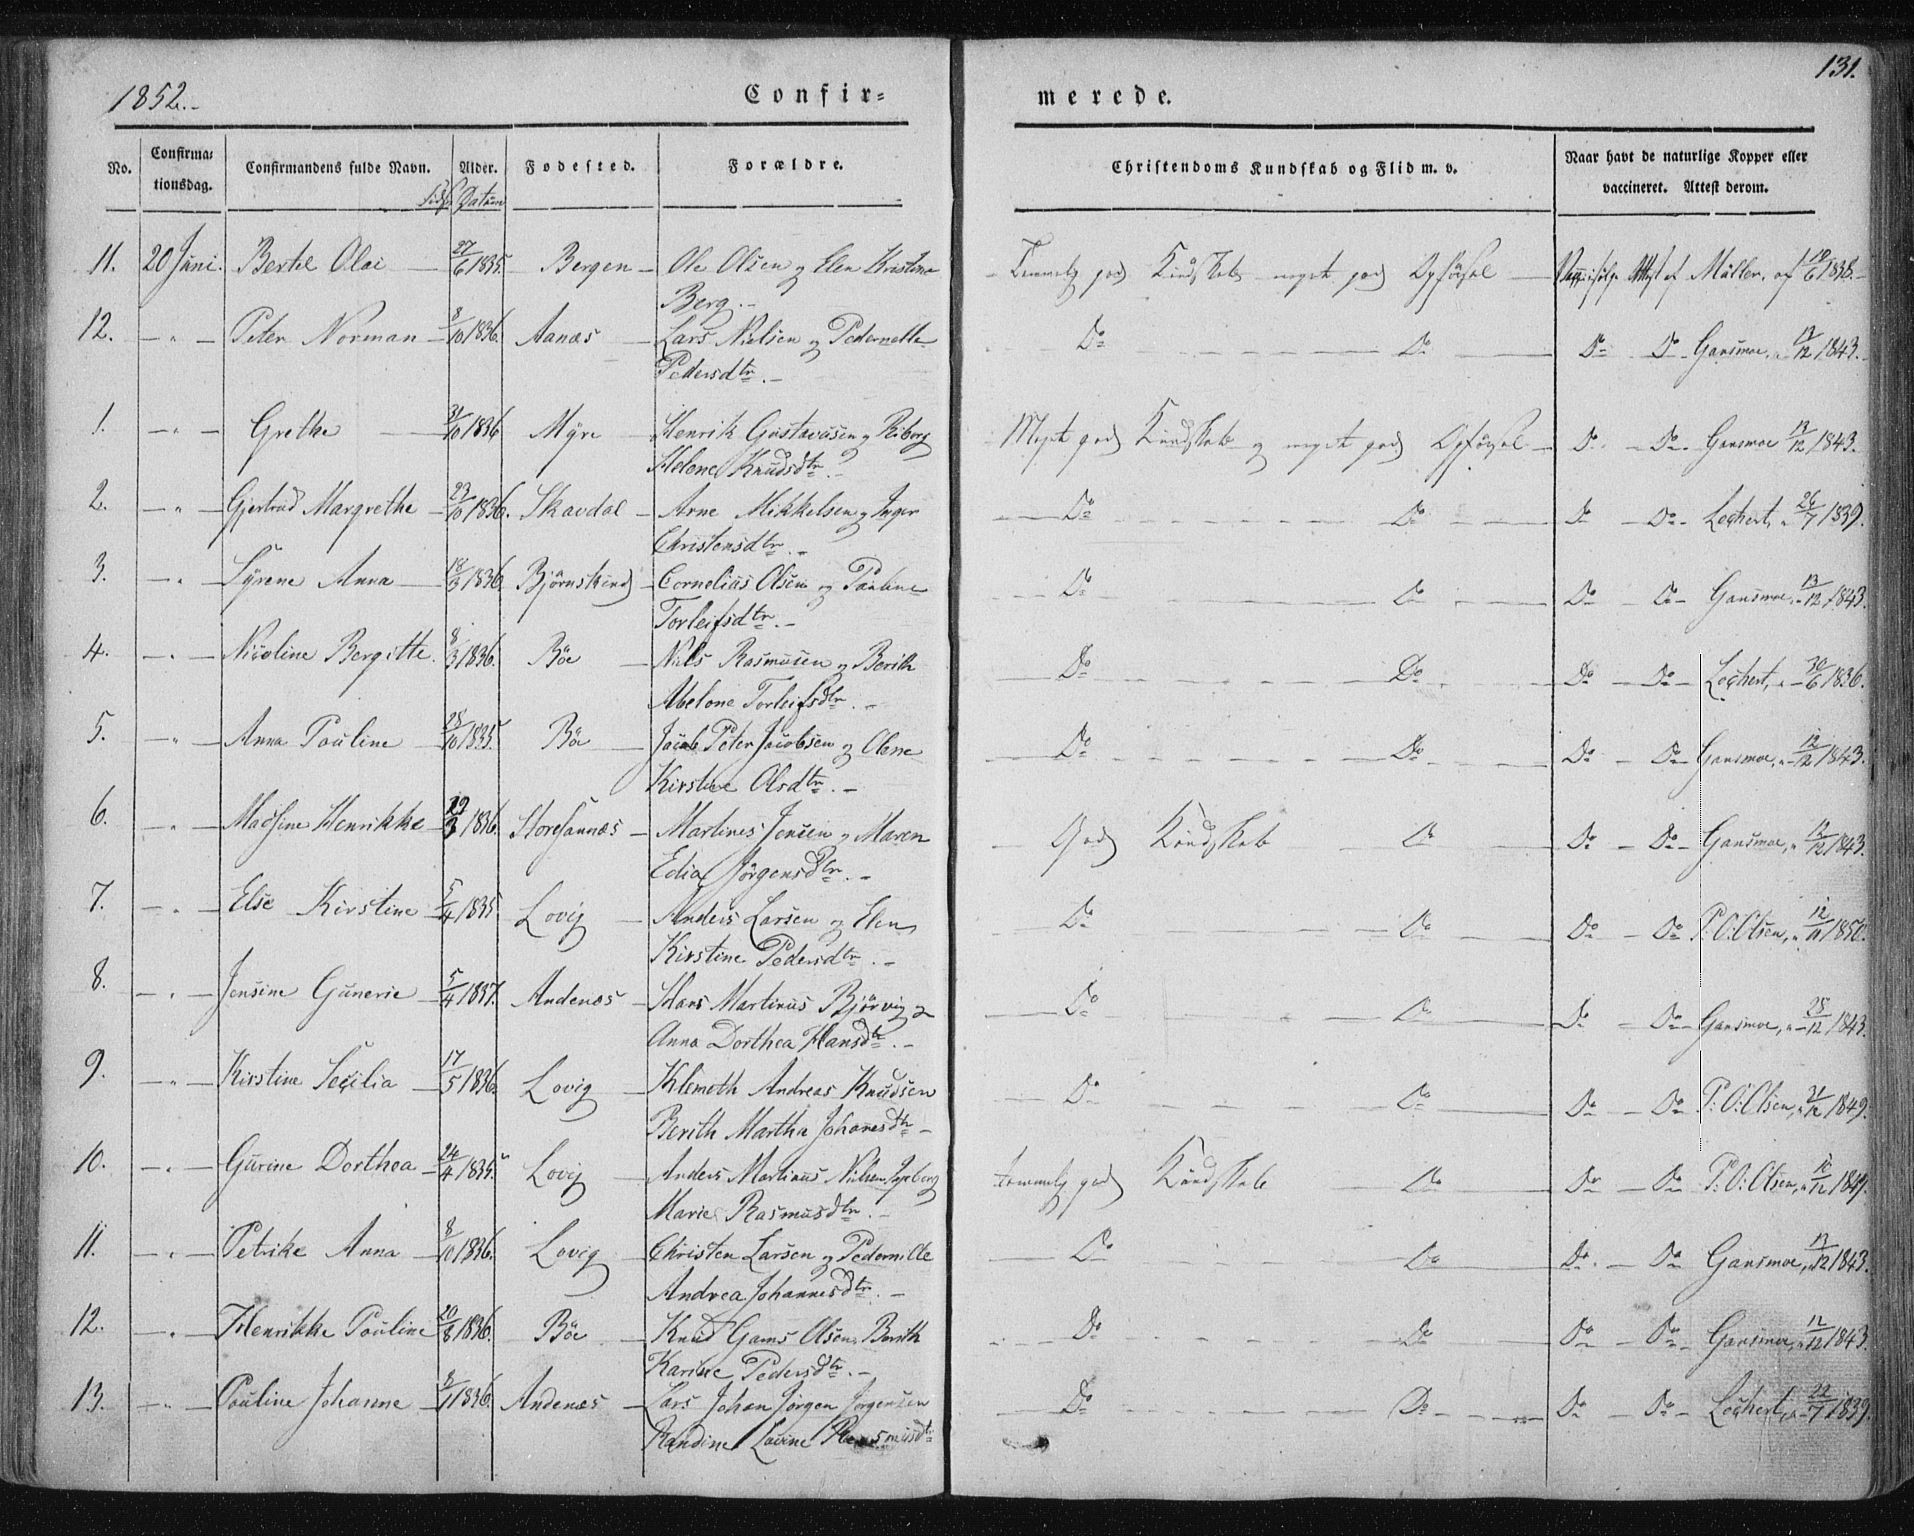 1852.-
Confir-
merede.
131.
No.
Confirma-
tionsdag.
Confirmandens fulde Navn.
Alder.
Datum
Fødested.
Forældre.
Christendoms Kundskab og Flid m. v.
Naar havt de naturlige Kopper eller
vaccineret. Attest derom.
11. 20 Juni. Bertel Olai — 27/6 1835. Bergen — Ole Olsen og Elen Kristine — Temmelig god Kundskab meget god Opførsel — Attest af Müller, af 18/6 1838.
Berg.—
12. — " — Peter Norman — 8/10 1836. Aanæs — Lars Nielsen og Pedernelle — Do — Do — Do Do Gansmoe, 13/12 1843.
Pedersdtr.—
1. — " — Grethe — 31/10 1836 Myre — Henrik Gustavasen og Riborg Meget god Kundskab og meget god Opførsel — Do — Do Gansmoe 13/12 1843.
Helene Knudsdtr.—
2. — " — Gjertrud Margrethe — 23/10 1836. Skavdal — Arne Mikkelsen og Inger — Do — Do — Do — Do Lochert, 26/7 1839.
Christensdtr.—
3. — " — Syrene Anna — 18/3 1836 Bjørnskind — Cornelius Olsen og Pauline — Do — Do — Do — Do — Gansmoe, 13/12 1843.
Torleifsdtr.—
4. — " — Nicoline Bergitte. 8/3 1836. Böe — Niels Rasmusen og Berith — Do — Do — Do — Do — Lochert, 30/6 1836.
Abelone Torleifsdtr.—
5. — " — Anna Pauline — 28/10 1835. Böe — Jacob Peter Jacobsen og Olene — Do — Do — Do — Do Gansmoe, 12/12 1843.
Kirstine Olsdtr.—
6. — " — Madsine Henrikke 29/3 1836. Storesannæs — Martines Jensen og Maren — God Kundskab — Do — Do — Do — Gansmoe, 12/12 1843.
Edia Jörgensdtr.—
7. — " — Else Kirstine 5/4 1835 Lovig — Anders Larsen og Elen — Do — Do — Do — Do P: O: Olsen, 12/11 1850.
Kirstine Pedersdtr.—
8. — " — Jensine Gunerie — 5/4 1837. Andenæs — Hans Martinus Björvig og — Do — Do — Do — Do — Gansmoe, 28/12 1843.
Anna Dorthea Hansdtr.—
9. — " — Kirstine Secilia — 17/5 1836. Lovig — Klemeth Andreas Knudsen — Do — Do — Do — Do P: O: Olsen, 21/12 1849.
Berith Martha Johanesdtr—
10. — " — Gurine Dorthea — 24/4 1835. Lovig — Anders Martinus Nielsen, Ingeborg temmelig god Kundskab — Do — Do — Do P: O: Olsen, 12/12 1849.
Marie Rasmusdtr.—
11. — " — Petrike Anna — 8/10 1836. Lovig — Christen Larsen og Pedernille — Do — Do — Do — Do Gansmoe, 13/12 1843.
Andrea Johannesdtr.—
12. — " — Henrikke Pauline 20/8 1836. Böe — Knud Gams Olsen Berith — Do — Do — Do — Do Gansmoe, 12/12 1843.
Karine Pedersdtr.—
13. — " — Pauline Johanne — 8/1 1836. Andenæs — Lars Johan Jörgen Jörgensen — Do — Do — Do — Do — Lochert, 22/7 1839.
Randine Lovine Rasmusdtr